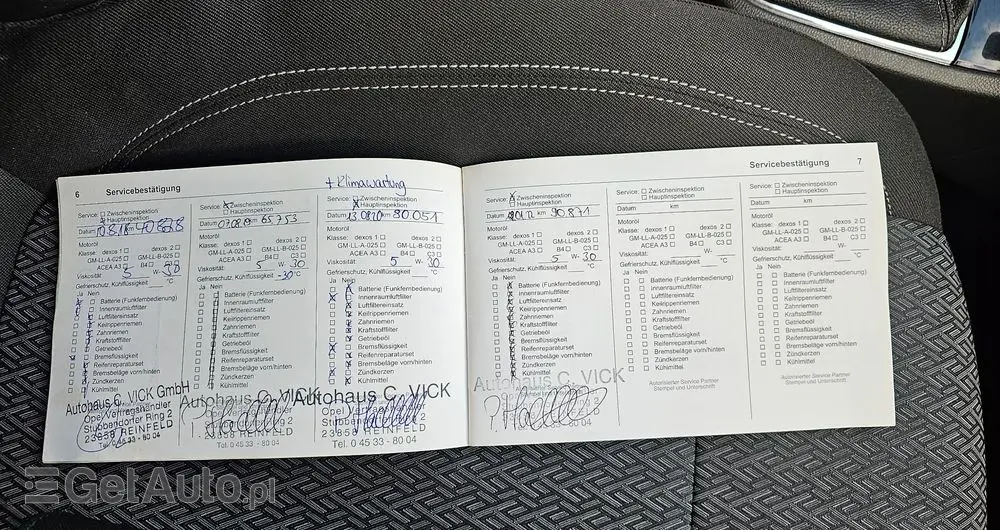 6 Servicebestätigung
+Klimawartung
Service: Zwischeninspektion
Hauptinspektion
Datum km
Motoröl
Klasse: dexos 1 dexos 2
GM-LL-A-025 GM-LL-B-025
ACEA A3 B4 C3
Viskosität: 5 W- 30
Gefrierschutz, Kühlflüssigkeit °C
Ja Nein
Batterie (Funkfernbedienung)
Innenraumluftfilter
Luftfiltereinsatz
Keilrippenriemen
Zahnriemen
Kraftstofffilter
Getriebeöl
Bremsflüssigkeit
Reifenreparaturset
Bremsbeläge vorn/hinten
Zündkerzen
Kühlmittel
Autohaus C. VICK GmbH
Opel Vertragshändler
Stubbendorfer Ring 2
23858 REINFELD
Tel. 0 45 33 - 80 04
Service: Zwischeninspektion
Hauptinspektion
Datum km 65 753
Motoröl
Klasse: dexos 1 dexos 2
GM-LL-A-025 GM-LL-B-025
ACEA A3 B4 C3
Viskosität: 5 W- 30
Gefrierschutz, Kühlflüssigkeit -30 °C
Ja Nein
Batterie (Funkfernbedienung)
Innenraumluftfilter
Luftfiltereinsatz
Keilrippenriemen
Zahnriemen
Kraftstofffilter
Getriebeöl
Bremsflüssigkeit
Reifenreparaturset
Bremsbeläge vorn/hinten
Zündkerzen
Kühlmittel
Autohaus C. VICK
23858 REINFELD
Tel. 0 45 33 - 80 04
Service: Zwischeninspektion
Hauptinspektion
Datum 13.08.20 km 80 051
Motoröl
Klasse: dexos 1 dexos 2
GM-LL-A-025 GM-LL-B-025
ACEA A3 B4 C3
Viskosität: 5 W- 30
Gefrierschutz, Kühlflüssigkeit °C
Ja Nein
Batterie (Funkfernbedienung)
Innenraumluftfilter
Luftfiltereinsatz
Keilrippenriemen
Zahnriemen
Kraftstofffilter
Getriebeöl
Bremsflüssigkeit
Reifenreparaturset
Bremsbeläge vorn/hinten
Zündkerzen
Kühlmittel
Autohaus C. VICK
Opel Vertragshändler
23858 REINFELD
Tel. 0 45 33 - 80 04
Servicebestätigung 7
Service: Zwischeninspektion
Hauptinspektion
Datum km 90.871
Motoröl
Klasse: dexos 1 dexos 2
GM-LL-A-025 GM-LL-B-025
ACEA A3 B4 C3
Viskosität: 5 W- 30
Gefrierschutz, Kühlflüssigkeit °C
Ja Nein
Batterie (Funkfernbedienung)
Innenraumluftfilter
Luftfiltereinsatz
Keilrippenriemen
Zahnriemen
Kraftstofffilter
Getriebeöl
Bremsflüssigkeit
Reifenreparaturset
Bremsbeläge vorn/hinten
Zündkerzen
Kühlmittel
Autohaus C. VICK
Service: Zwischeninspektion
Hauptinspektion
Datum km
Motoröl
Klasse: dexos 1 dexos 2
GM-LL-A-025 GM-LL-B-025
ACEA A3 B4 C3
Viskosität: W-
Gefrierschutz, Kühlflüssigkeit °C
Ja Nein
Batterie (Funkfernbedienung)
Innenraumluftfilter
Luftfiltereinsatz
Keilrippenriemen
Zahnriemen
Kraftstofffilter
Getriebeöl
Bremsflüssigkeit
Reifenreparaturset
Bremsbeläge vorn/hinten
Zündkerzen
Kühlmittel
Autorisierter Service Partner
Stempel und Unterschrift
Service: Zwischeninspektion
Hauptinspektion
Datum km
Motoröl
Klasse: dexos 1 dexos 2
GM-LL-A-025 GM-LL-B-025
ACEA A3 B4 C3
Viskosität: W-
Gefrierschutz, Kühlflüssigkeit °C
Ja Nein
Batterie (Funkfernbedienung)
Innenraumluftfilter
Luftfiltereinsatz
Keilrippenriemen
Zahnriemen
Kraftstofffilter
Getriebeöl
Bremsflüssigkeit
Reifenreparaturset
Bremsbeläge vorn/hinten
Zündkerzen
Kühlmittel
Autorisierter Service Partner
Stempel und Unterschrift
GetAuto.pl